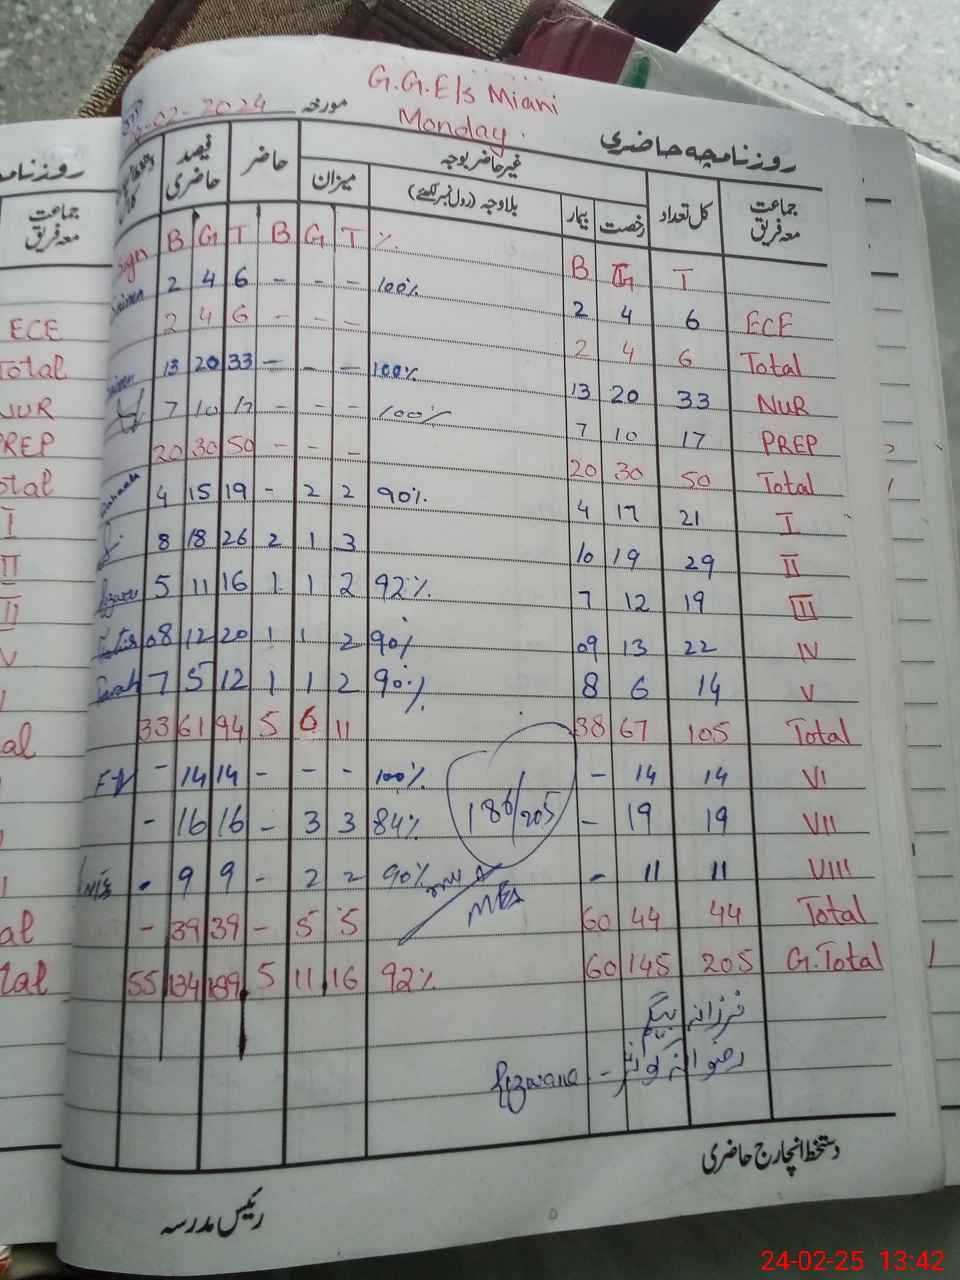 G.G.E/s Miani
Monday.
روزنامچہ حاضری
مورخہ -02-2024
جماعت معہ فریق کل تعداد رخصت بیمار بلاوجہ (رول نمبر لکھئے) غیر حاضر بوجہ میزان حاضر فیصد حاضری
sign B G T B G T % B G T
2 4 6 - - - 100% 2 4 6 ECE
2 4 6 - - - 2 4 6 Total
13 20 33 - - - 100% 13 20 33 NUR
7 10 17 - - - 100% 7 10 17 PREP
20 30 50 - - - 20 30 50 Total
4 15 19 - 2 2 90% 4 17 21 I
8 18 26 2 1 3 10 19 29 II
5 11 16 1 1 2 92% 7 12 19 III
08 12 20 1 1 2 90% 09 13 22 IV
Farah 7 5 12 1 1 2 90% 8 6 14 V
33 61 94 5 6 11 38 67 105 Total
- 14 14 - - - 100% - 14 14 VI
- 16 16 - 3 3 84% - 19 19 VII
- 9 9 - 2 2 90% - 11 11 VIII
186/205
MEA
- 39 39 - 5 5 60 44 44 Total
55 134 189 5 11 16 92% 60 145 205 G.Total
فرزانہ بیگم
Rizwana - رضوانہ کوثر
دستخط انچارج حاضری
رئیس مدرسہ
روزنامچہ
جماعت معہ فریق
ECE
Total
NUR
PREP
Total
I
II
III
V
al
al
tal
24-02-25 13:42